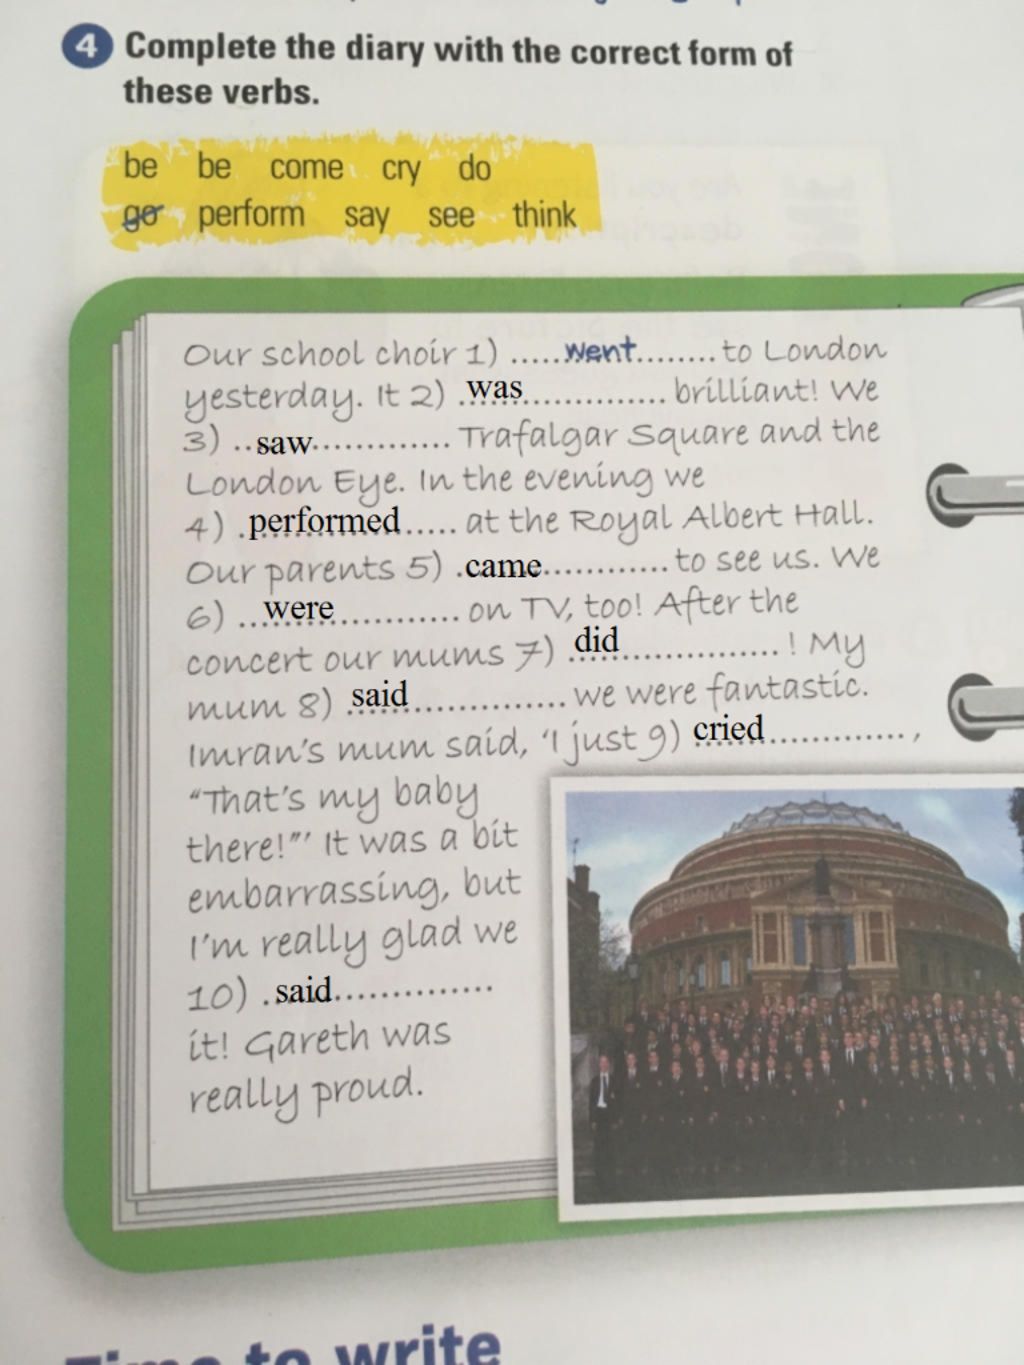 4 Complete the diary with the correct form of
these verbs.
be be come cry do
go perform say see think
Our school choir 1) .....went........ to London
yesterday. It 2) .was............... brilliant! We
3) ..saw............. Trafalgar Square and the
London Eye. In the evening we
4) .performed..... at the Royal Albert Hall.
Our parents 5) .came............ to see us. We
6) ...were............ on TV, too! After the
concert our mums 7) did.................! My
mum 8) said................ we were fantastic.
Imran's mum said, 'I just 9) cried..............,
"That's my baby
there!"' It was a bit
embarrassing, but
I'm really glad we
10) .said...............
it! Gareth was
really proud.
Time to write